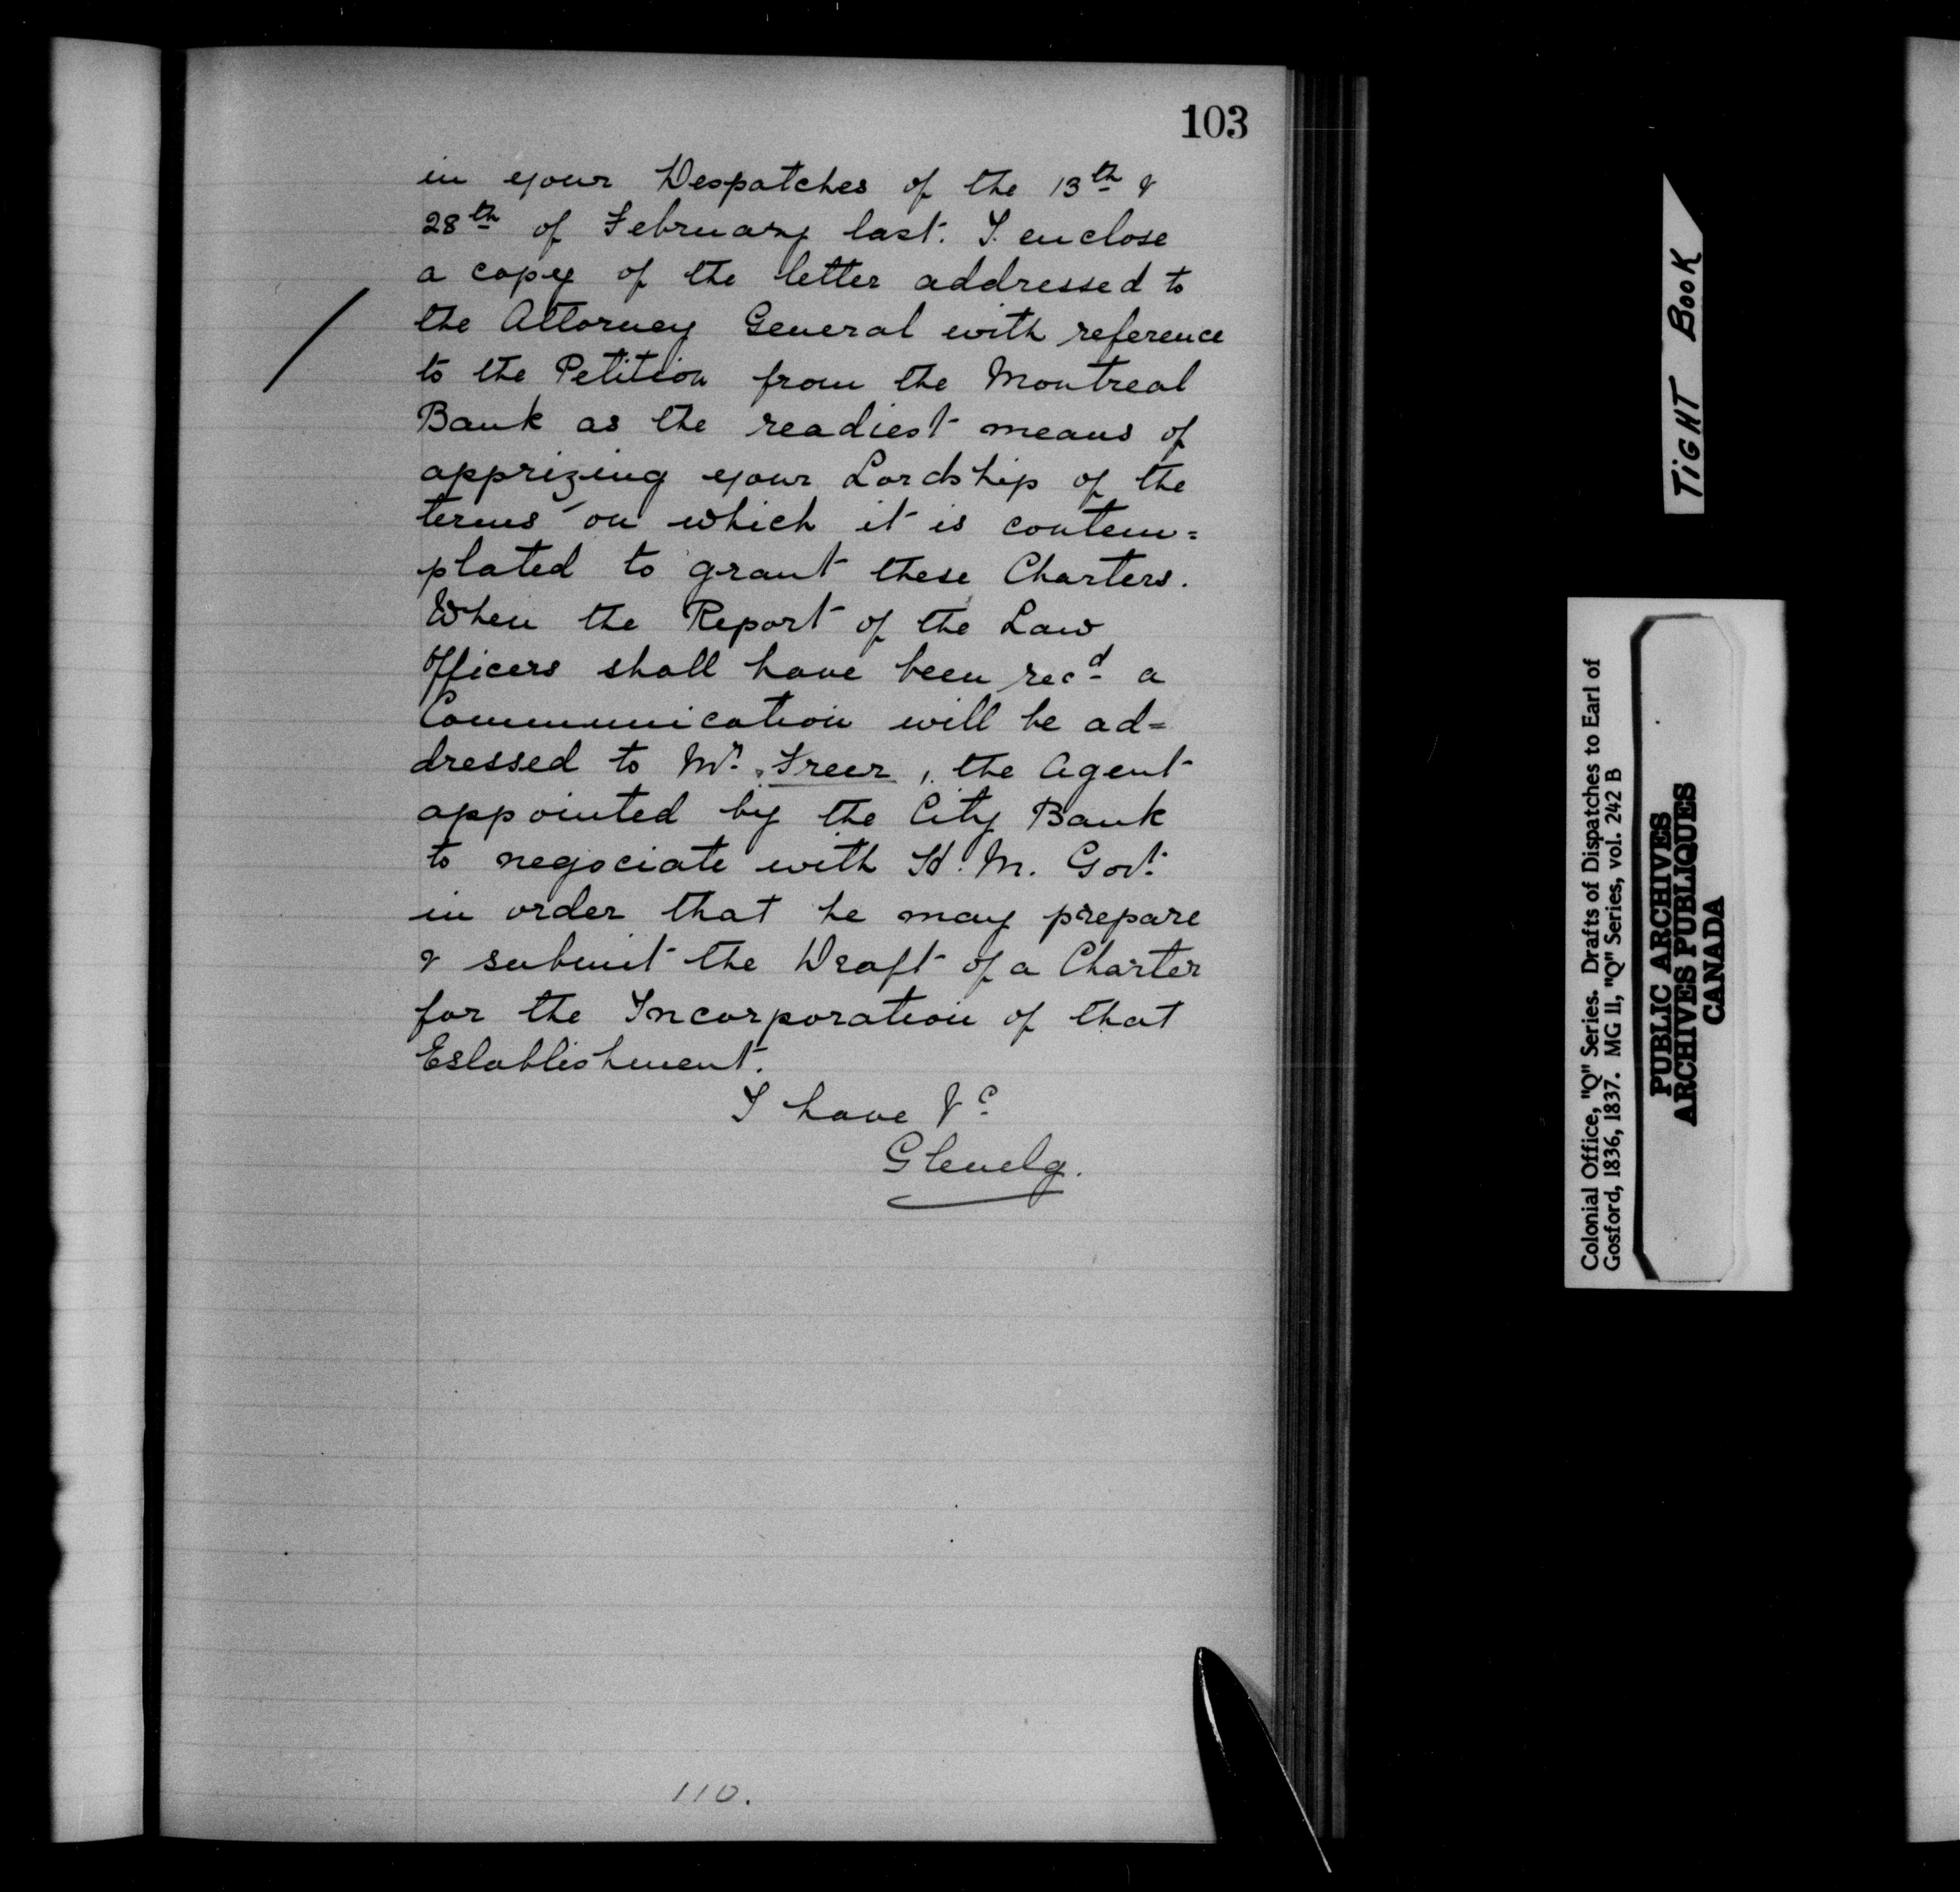 103
in your Despatches of the 13th &
28th of February last. I enclose
a copy of the letter addressed to
the Attorney General with reference
to the Petition from the Montreal
Bank as the readiest means of
apprizing your Lordship of the
terms on which it is contem=
plated to grant these Charters.
When the Report of the Law
Officers shall have been recd a
Communication will be ad=
dressed to Mr. Freer, the Agent
appointed by the City Bank
to negociate with H. M. Govt.
in order that he may prepare
& submit the Draft of a Charter
for the Incorporation of that
Establishment.
I have &c
Glenelg.
110.
TIGHT BOOK
Colonial Office, "Q" Series. Drafts of Dispatches to Earl of
Gosford, 1836, 1837. MG 11, "Q" Series, vol. 242 B
PUBLIC ARCHIVES
ARCHIVES PUBLIQUES
CANADA